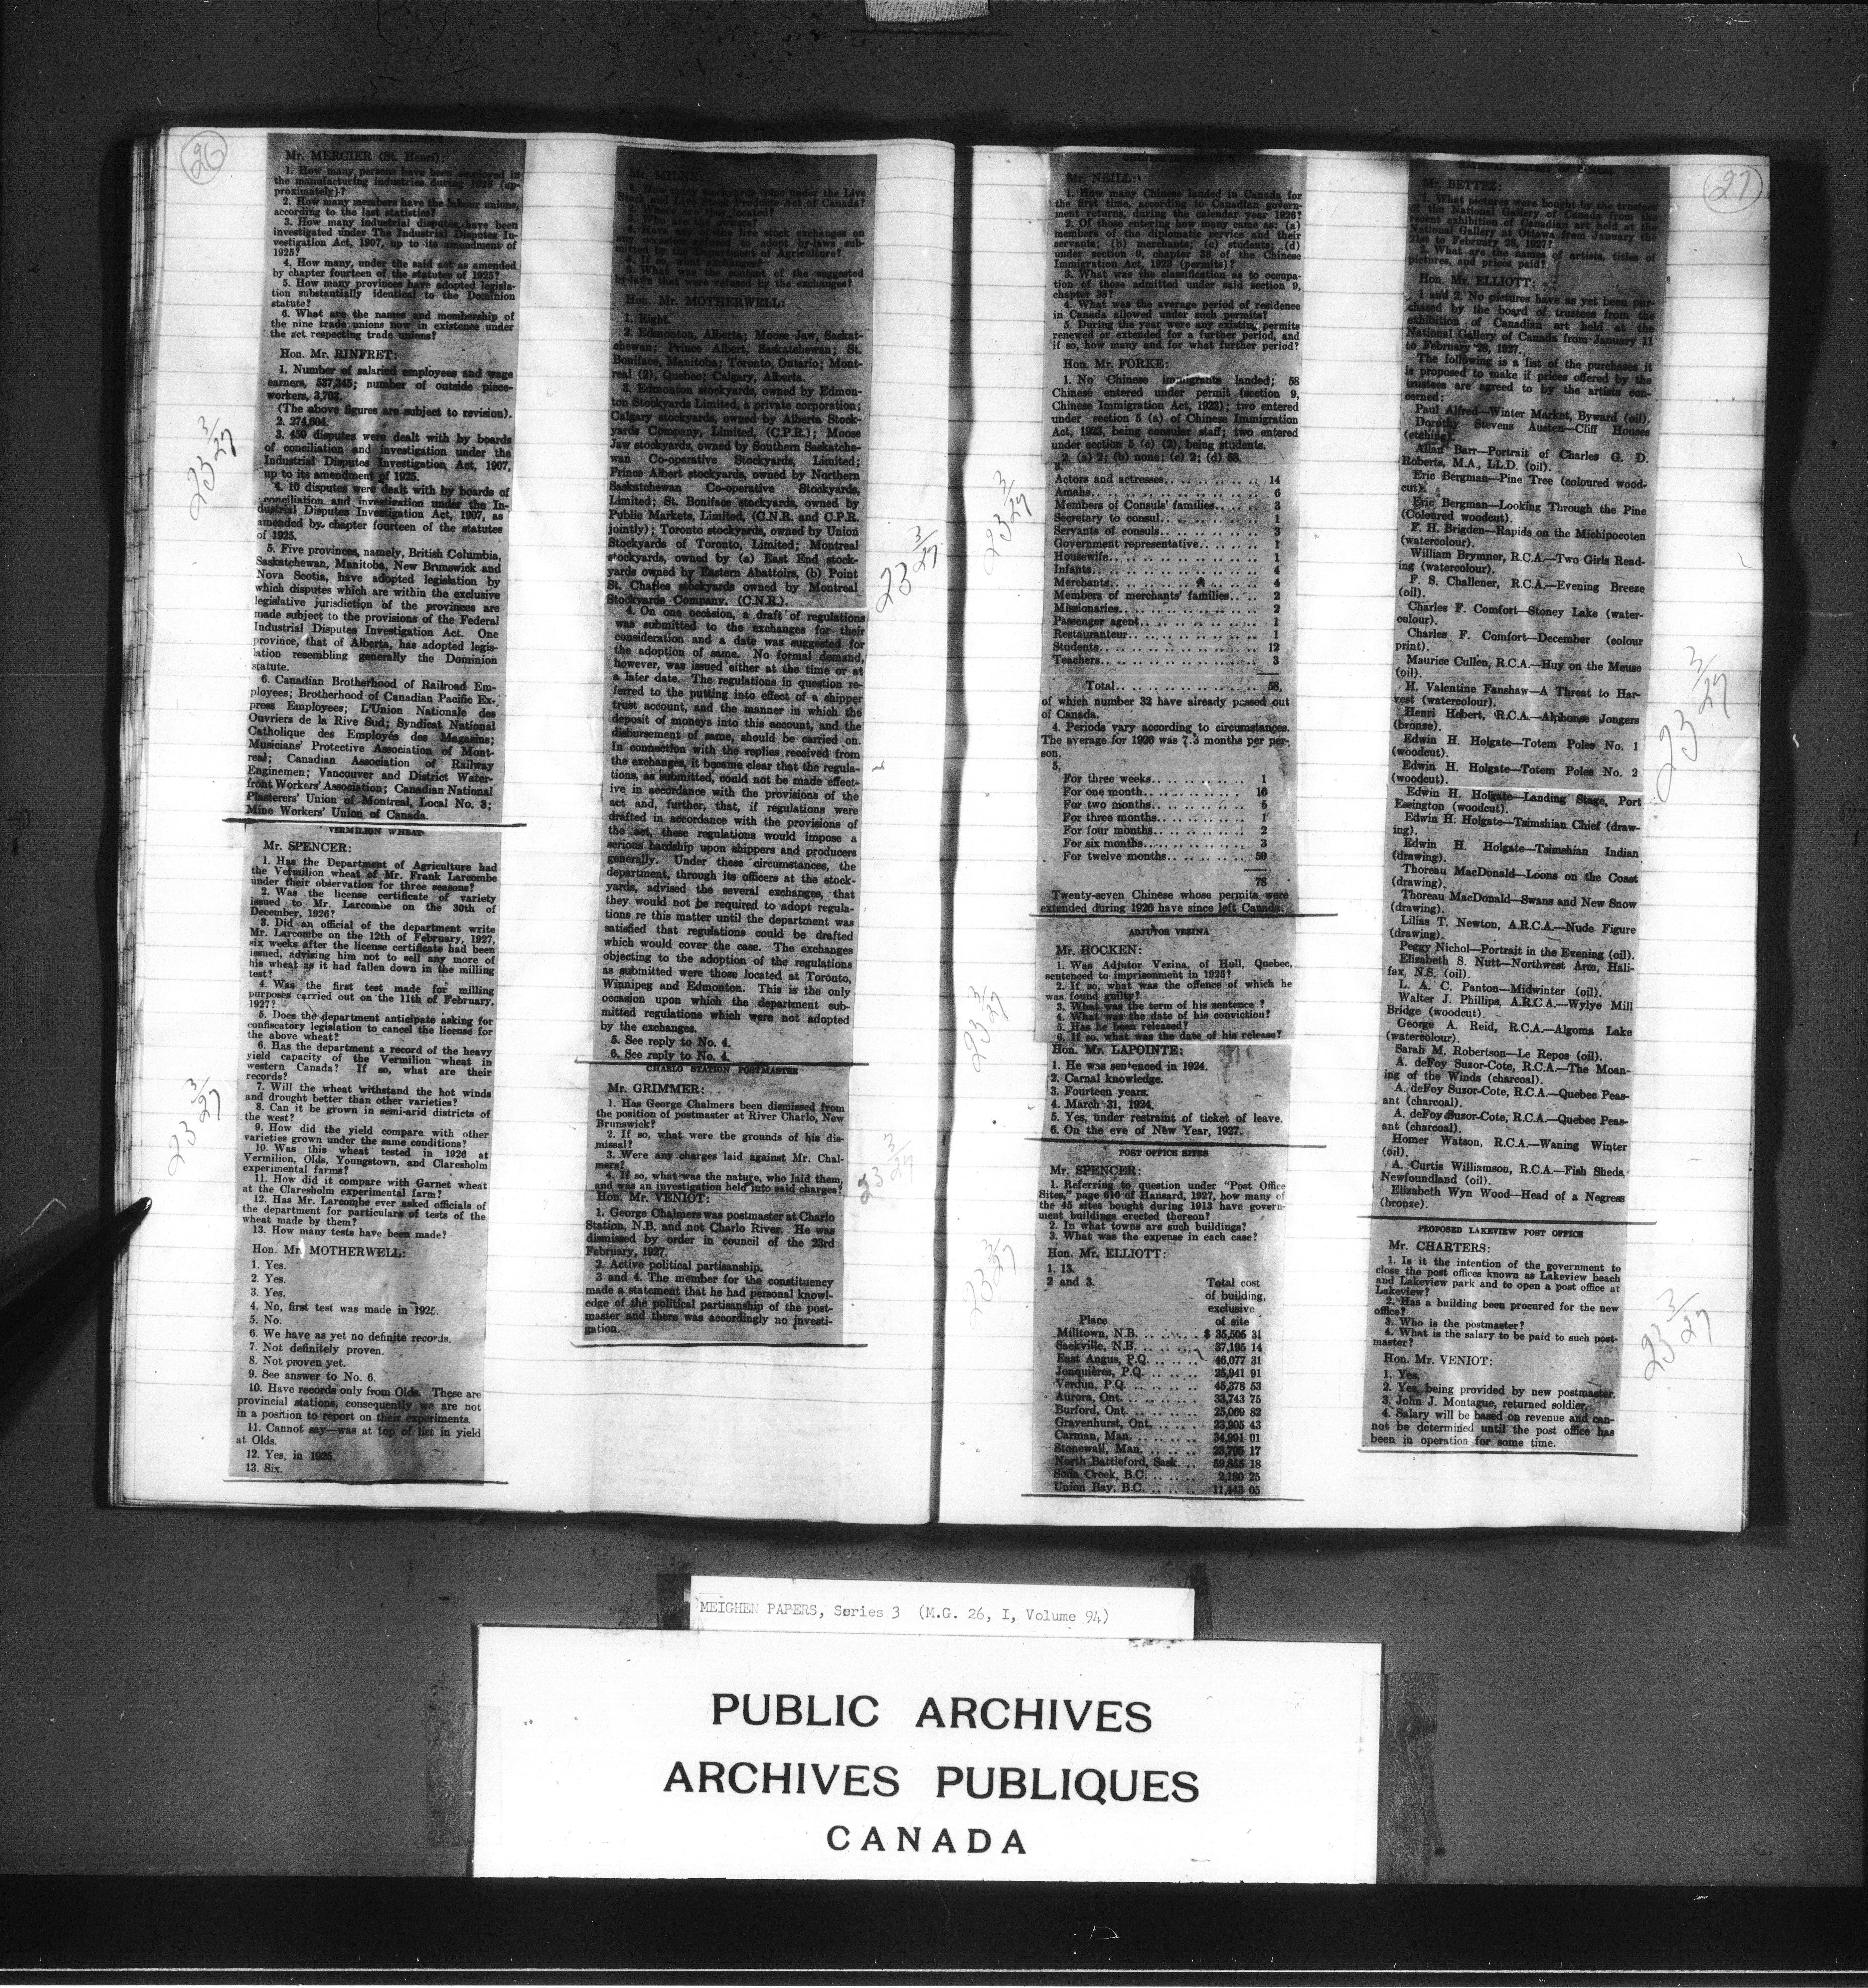 26
LABOUR STATISTICS
Mr. MERCIER (St. Henri):
1. How many persons have been employed in
the manufacturing industries during 1925 (ap-
proximately)?
2. How many members have the labour unions,
according to the last statistics?
3. How many industrial disputes have been
investigated under The Industrial Disputes In-
vestigation Act, 1907, up to its amendment of
1925?
4. How many, under the said act as amended
by chapter fourteen of the statutes of 1925?
5. How many provinces have adopted legisla-
tion substantially identical to the Dominion
statute?
6. What are the names and membership of
the nine trade unions now in existence under
the act respecting trade unions?
Hon. Mr. RINFRET:
1. Number of salaried employees and wage
earners, 537,345; number of outside piece-
workers, 3,703.
(The above figures are subject to revision).
2. 274,604.
3. 450 disputes were dealt with by boards
of conciliation and investigation under the
Industrial Disputes Investigation Act, 1907,
up to its amendment of 1925.
4. 10 disputes were dealt with by boards of
conciliation and investigation under the In-
dustrial Disputes Investigation Act, 1907, as
amended by chapter fourteen of the statutes
of 1925.
5. Five provinces, namely, British Columbia,
Saskatchewan, Manitoba, New Brunswick and
Nova Scotia, have adopted legislation by
which disputes which are within the exclusive
legislative jurisdiction of the provinces are
made subject to the provisions of the Federal
Industrial Disputes Investigation Act. One
province, that of Alberta, has adopted legis-
lation resembling generally the Dominion
statute.
6. Canadian Brotherhood of Railroad Em-
ployees; Brotherhood of Canadian Pacific Ex-
press Employees; L'Union Nationale des
Ouvriers de la Rive Sud; Syndicat National
Catholique des Employés des Magasins;
Musicians' Protective Association of Mont-
real; Canadian Association of Railway
Enginemen; Vancouver and District Water-
front Workers' Association; Canadian National
Plasterers' Union of Montreal, Local No. 3;
Mine Workers' Union of Canada.
23 3/27
VERMILION WHEAT
Mr. SPENCER:
1. Has the Department of Agriculture had
the Vermilion wheat of Mr. Frank Larcombe
under their observation for three seasons?
2. Was the license certificate of variety
issued to Mr. Larcombe on the 30th of
December, 1926?
3. Did an official of the department write
Mr. Larcombe on the 12th of February, 1927,
six weeks after the license certificate had been
issued, advising him not to sell any more of
his wheat as it had fallen down in the milling
test?
4. Was the first test made for milling
purposes carried out on the 11th of February,
1927?
5. Does the department anticipate asking for
confiscatory legislation to cancel the license for
the above wheat?
6. Has the department a record of the heavy
yield capacity of the Vermilion wheat in
western Canada? If so, what are their
records?
7. Will the wheat withstand the hot winds
and drought better than other varieties?
8. Can it be grown in semi-arid districts of
the west?
9. How did the yield compare with other
varieties grown under the same conditions?
10. Was this wheat tested in 1926 at
Vermilion, Olds, Youngstown, and Claresholm
experimental farms?
11. How did it compare with Garnet wheat
at the Claresholm experimental farm?
12. Has Mr. Larcombe ever asked officials of
the department for particulars of tests of the
wheat made by them?
13. How many tests have been made?
Hon. Mr. MOTHERWELL:
1. Yes.
2. Yes.
3. Yes.
4. No, first test was made in 1925.
5. No.
6. We have as yet no definite records.
7. Not definitely proven.
8. Not proven yet.
9. See answer to No. 6.
10. Have records only from Olds. These are
provincial stations, consequently we are not
in a position to report on their experiments.
11. Cannot say—was at top of list in yield
at Olds.
12. Yes, in 1925.
13. Six.
23 3/27
Mr. MILNE:
1. How many stockyards come under the Live
Stock and Live Stock Products Act of Canada?
2. Where are they located?
3. Who are the owners?
4. Have any of the live stock exchanges on
any occasion refused to adopt by-laws sub-
mitted by the Department of Agriculture?
5. If so, what exchanges?
6. What was the content of the suggested
by-laws that were refused by the exchanges?
Hon. Mr. MOTHERWELL:
1. Eight.
2. Edmonton, Alberta; Moose Jaw, Saskat-
chewan; Prince Albert, Saskatchewan; St.
Boniface, Manitoba; Toronto, Ontario; Mont-
real (2), Quebec; Calgary, Alberta.
3. Edmonton stockyards, owned by Edmon-
ton Stockyards Limited, a private corporation;
Calgary stockyards, owned by Alberta Stock-
yards Company, Limited, (C.P.R.); Moose
Jaw stockyards, owned by Southern Saskatche-
wan Co-operative Stockyards, Limited;
Prince Albert stockyards, owned by Northern
Saskatchewan Co-operative Stockyards,
Limited; St. Boniface stockyards, owned by
Public Markets, Limited, (C.N.R. and C.P.R.
jointly); Toronto stockyards, owned by Union
Stockyards of Toronto, Limited; Montreal
stockyards, owned by (a) East End stock-
yards owned by Eastern Abattoirs, (b) Point
St. Charles stockyards owned by Montreal
Stockyards Company, (C.N.R.).
4. On one occasion, a draft of regulations
was submitted to the exchanges for their
consideration and a date was suggested for
the adoption of same. No formal demand,
however, was issued either at the time or at
a later date. The regulations in question re-
ferred to the putting into effect of a shipper
trust account, and the manner in which the
deposit of moneys into this account, and the
disbursement of same, should be carried on.
In connection with the replies received from
the exchanges, it became clear that the regula-
tions, as submitted, could not be made effect-
ive in accordance with the provisions of the
act and, further, that, if regulations were
drafted in accordance with the provisions of
the act, these regulations would impose a
serious hardship upon shippers and producers
generally. Under these circumstances, the
department, through its officers at the stock-
yards, advised the several exchanges, that
they would not be required to adopt regula-
tions re this matter until the department was
satisfied that regulations could be drafted
which would cover the case. The exchanges
objecting to the adoption of the regulations
as submitted were those located at Toronto,
Winnipeg and Edmonton. This is the only
occasion upon which the department sub-
mitted regulations which were not adopted
by the exchanges.
5. See reply to No. 4.
6. See reply to No. 4.
23 3/27
CHARLO STATION POSTMASTER
Mr. GRIMMER:
1. Has George Chalmers been dismissed from
the position of postmaster at River Charlo, New
Brunswick?
2. If so, what were the grounds of his dis-
missal?
3. Were any charges laid against Mr. Chal-
mers?
4. If so, what was the nature, who laid them,
and was an investigation held into said charges?
Hon. Mr. VENIOT:
1. George Chalmers was postmaster at Charlo
Station, N.B. and not Charlo River. He was
dismissed by order in council of the 23rd
February, 1927.
2. Active political partisanship.
3 and 4. The member for the constituency
made a statement that he had personal knowl-
edge of the political partisanship of the post-
master and there was accordingly no investi-
gation.
23 3/27
CHINESE IMMIGRATION
Mr. NEILL:
1. How many Chinese landed in Canada for
the first time, according to Canadian govern-
ment returns, during the calendar year 1926?
2. Of those entering how many came as: (a)
members of the diplomatic service and their
servants; (b) merchants; (c) students; (d)
under section 9, chapter 38 of the Chinese
Immigration Act, 1923 (permits)?
3. What was the classification as to occupa-
tion of those admitted under said section 9,
chapter 38?
4. What was the average period of residence
in Canada allowed under such permits?
5. During the year were any existing permits
renewed or extended for a further period, and
if so, how many and for what further period?
Hon. Mr. FORKE:
1. No Chinese immigrants landed; 58
Chinese entered under permit (section 9,
Chinese Immigration Act, 1923); two entered
under section 5 (a) of Chinese Immigration
Act, 1923, being consular staff; two entered
under section 5 (c) (2), being students.
2. (a) 2; (b) none; (c) 2; (d) 58.
3.
Actors and actresses.. 14
Amahs.. 6
Members of Consuls' families.. 3
Secretary to consul.. 1
Servants of consuls.. 3
Government representative.. 1
Housewife.. 1
Infants.. 4
Merchants.. 4
Members of merchants' families.. 2
Missionaries.. 2
Passenger agent.. 1
Restauranteur.. 1
Students.. 12
Teachers.. 3
Total.. 58,
of which number 32 have already passed out
of Canada.
4. Periods vary according to circumstances.
The average for 1926 was 7.3 months per per-
son.
5.
For three weeks.. 1
For one month.. 16
For two months.. 5
For three months.. 1
For four months.. 2
For six months.. 3
For twelve months.. 50
78
Twenty-seven Chinese whose permits were
extended during 1926 have since left Canada.
23 3/27
ADJUTOR VEZINA
Mr. HOCKEN:
1. Was Adjutor Vezina, of Hull, Quebec,
sentenced to imprisonment in 1925?
2. If so, what was the offence of which he
was found guilty?
3. What was the term of his sentence?
4. What was the date of his conviction?
5. Has he been released?
6. If so, what was the date of his release?
Hon. Mr. LAPOINTE:
1. He was sentenced in 1924.
2. Carnal knowledge.
3. Fourteen years.
4. March 31, 1924.
5. Yes, under restraint of ticket of leave.
6. On the eve of New Year, 1927.
23 3/27
POST OFFICE SITES
Mr. SPENCER:
1. Referring to question under "Post Office
Sites," page 610 of Hansard, 1927, how many of
the 45 sites bought during 1913 have govern-
ment buildings erected thereon?
2. In what towns are such buildings?
3. What was the expense in each case?
Hon. Mr. ELLIOTT:
1. 13.
2 and 3. Total cost
of building,
exclusive
Place of site
Milltown, N.B. .. $ 35,505 31
Sackville, N.B. .. 37,195 14
East Angus, P.Q. .. 46,077 31
Jonquières, P.Q. .. 25,941 91
Verdun, P.Q. .. 45,378 53
Aurora, Ont. .. 33,743 75
Burford, Ont. .. 25,069 82
Gravenhurst, Ont. .. 23,905 43
Carman, Man. .. 34,991 01
Stonewall, Man. .. 23,795 17
North Battleford, Sask. .. 59,855 18
Soda Creek, B.C. .. 2,180 25
Union Bay, B.C. .. 11,443 05
23 3/27
27
NATIONAL GALLERY OF CANADA
Mr. BETTEZ:
1. What pictures were bought by the trustees
of the National Gallery of Canada from the
recent exhibition of Canadian art held at the
National Gallery at Ottawa from January the
21st to February 28, 1927?
2. What are the names of artists, titles of
pictures, and prices paid?
Hon. Mr. ELLIOTT:
1 and 2. No pictures have as yet been pur-
chased by the board of trustees from the
exhibition of Canadian art held at the
National Gallery of Canada from January 11
to February 28, 1927.
The following is a list of the purchases it
is proposed to make if prices offered by the
trustees are agreed to by the artists con-
cerned:
Paul Alfred—Winter Market, Byward (oil).
Dorothy Stevens Austen—Cliff Houses
(etching).
Allan Barr—Portrait of Charles G. D.
Roberts, M.A., LL.D. (oil).
Eric Bergman—Pine Tree (coloured wood-
cut).
Eric Bergman—Looking Through the Pine
(Coloured woodcut).
F. H. Brigden—Rapids on the Michipocoten
(watercolour).
William Brymner, R.C.A.—Two Girls Read-
ing (watercolour).
F. S. Challener, R.C.A.—Evening Breeze
(oil).
Charles F. Comfort—Stoney Lake (water-
colour).
Charles F. Comfort—December (colour
print).
Maurice Cullen, R.C.A.—Huy on the Meuse
(oil).
H. Valentine Fanshaw—A Threat to Har-
vest (watercolour).
Henri Hebert, R.C.A.—Alphonse Jongers
(bronze).
Edwin H. Holgate—Totem Poles No. 1
(woodcut).
Edwin H. Holgate—Totem Poles No. 2
(woodcut).
Edwin H. Holgate—Landing Stage, Port
Essington (woodcut).
Edwin H. Holgate—Tsimshian Chief (draw-
ing).
Edwin H. Holgate—Tsimshian Indian
(drawing).
Thoreau MacDonald—Loons on the Coast
(drawing).
Thoreau MacDonald—Swans and New Snow
(drawing).
Lilias T. Newton, A.R.C.A.—Nude Figure
(drawing).
Peggy Nichol—Portrait in the Evening (oil).
Elizabeth S. Nutt—Northwest Arm, Hali-
fax, N.S. (oil).
L. A. C. Panton—Midwinter (oil).
Walter J. Phillips, A.R.C.A.—Wylye Mill
Bridge (woodcut).
George A. Reid, R.C.A.—Algoma Lake
(watercolour).
Sarah M. Robertson—Le Repos (oil).
A. deFoy Suzor-Cote, R.C.A.—The Moan-
ing of the Winds (charcoal).
A. deFoy Suzor-Cote, R.C.A.—Quebec Peas-
ant (charcoal).
A. deFoy Suzor-Cote, R.C.A.—Quebec Peas-
ant (charcoal).
Homer Watson, R.C.A.—Waning Winter
(oil).
A. Curtis Williamson, R.C.A.—Fish Sheds,
Newfoundland (oil).
Elizabeth Wyn Wood—Head of a Negress
(bronze).
23 3/27
PROPOSED LAKEVIEW POST OFFICE
Mr. CHARTERS:
1. Is it the intention of the government to
close the post offices known as Lakeview beach
and Lakeview park and to open a post office at
Lakeview?
2. Has a building been procured for the new
office?
3. Who is the postmaster?
4. What is the salary to be paid to such post-
master?
Hon. Mr. VENIOT:
1. Yes.
2. Yes, being provided by new postmaster.
3. John J. Montague, returned soldier.
4. Salary will be based on revenue and can-
not be determined until the post office has
been in operation for some time.
23 3/27
MEIGHEN PAPERS, Series 3 (M.G. 26, I, Volume 94)
PUBLIC ARCHIVES
ARCHIVES PUBLIQUES
CANADA